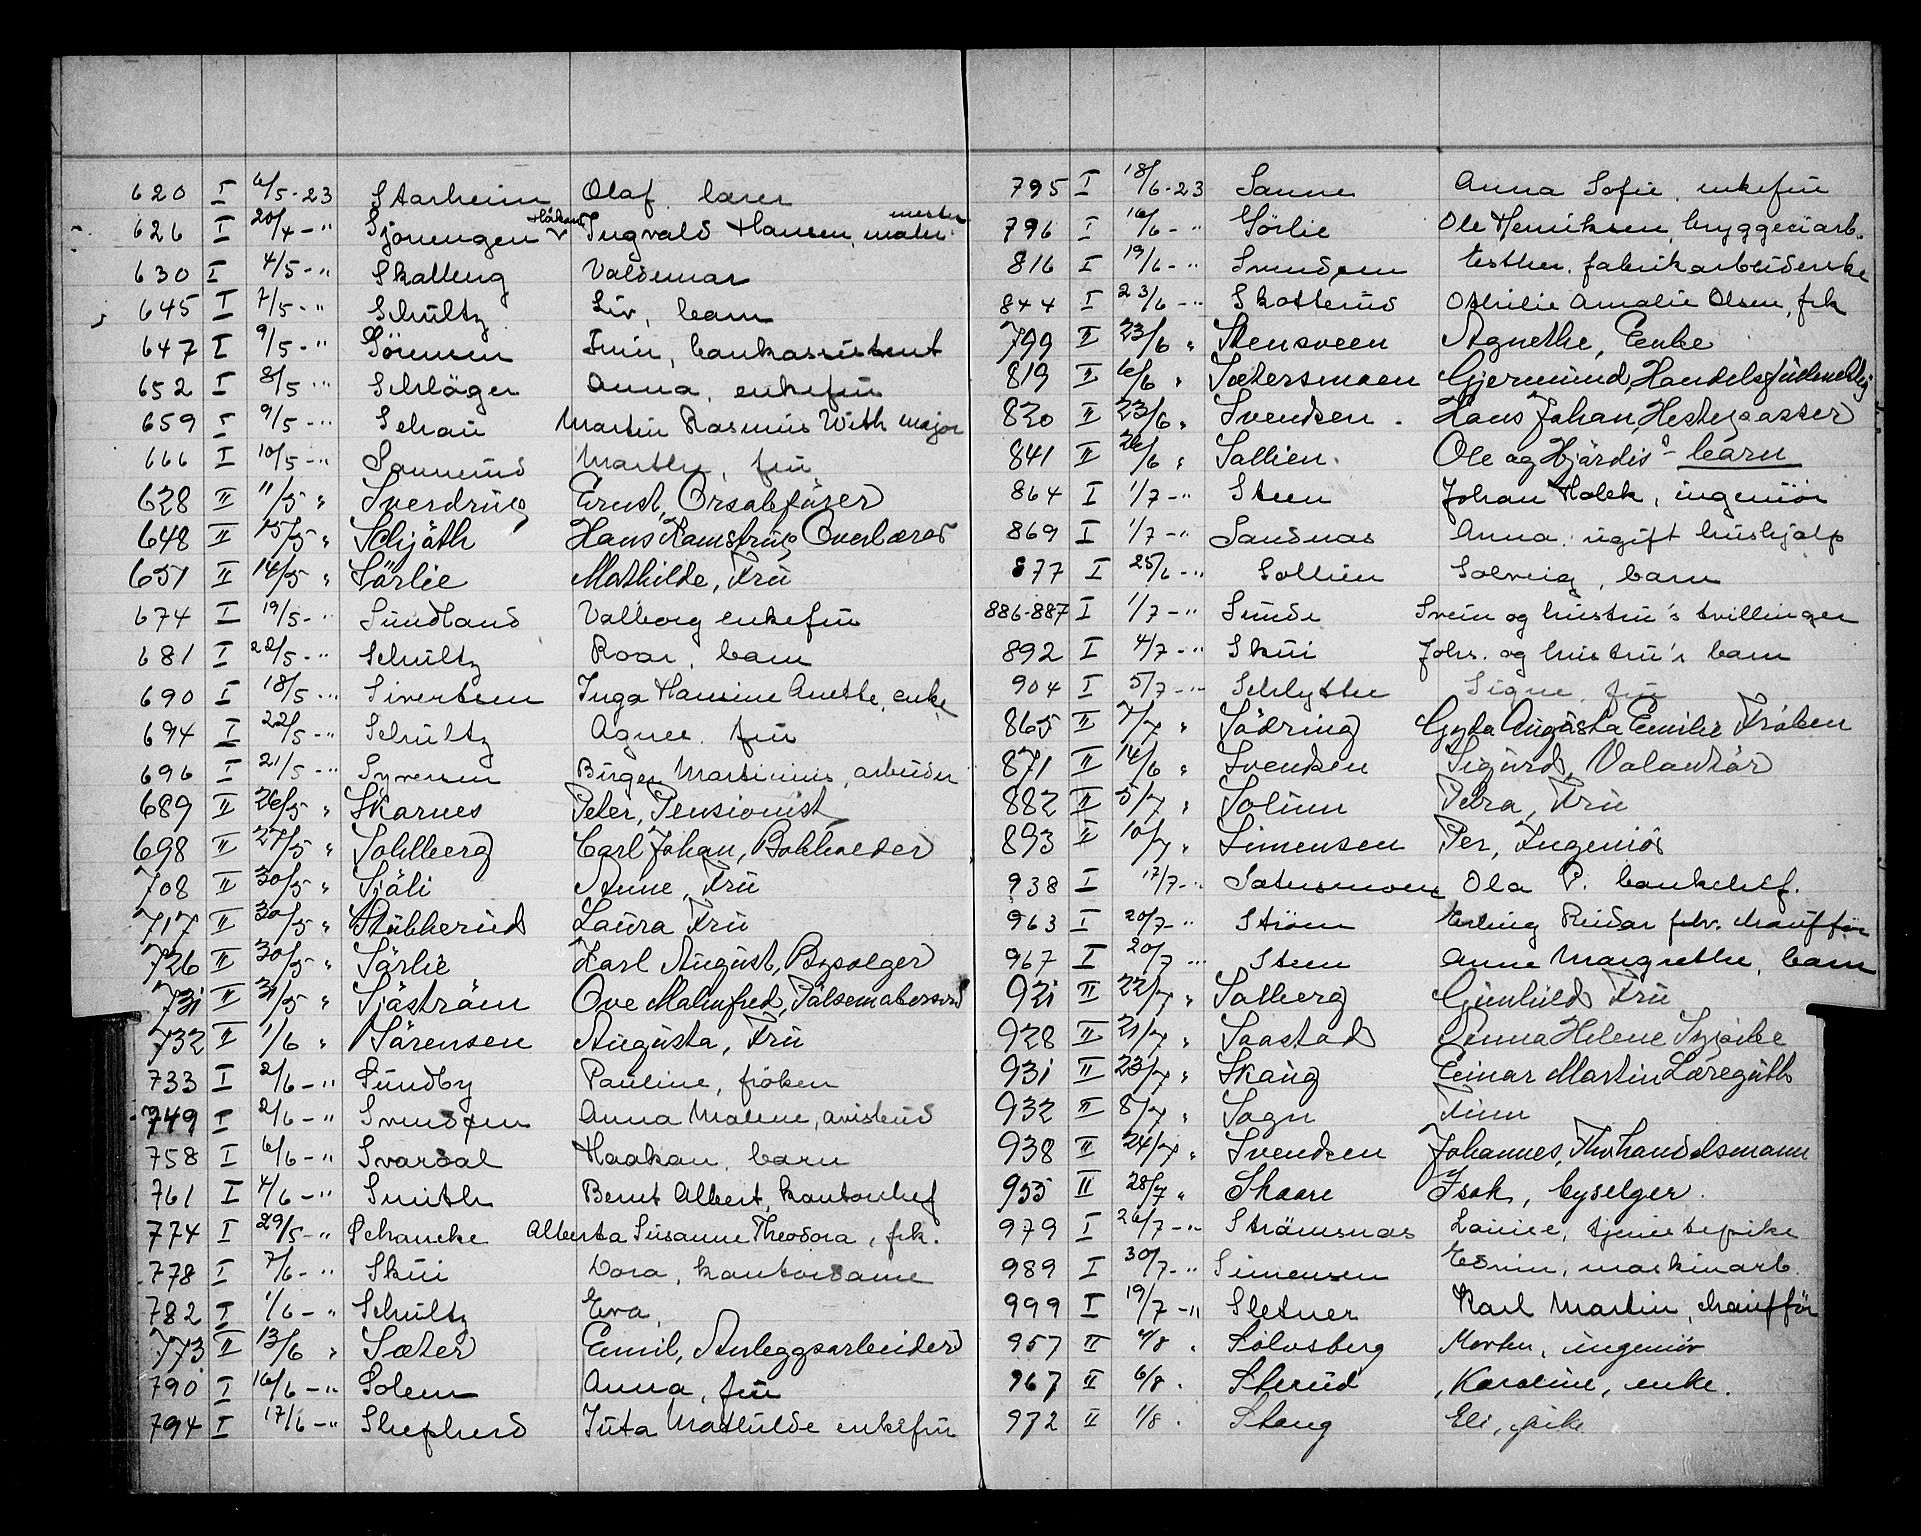 620 I 6/5-23 Starheim Olaf lærer
626 I 20/4-" Sjønengen Håkon Ingvald Hansen, maler mester
630 I 4/5-" Skalleng Valdemar
645 I 7/5-" Schultz Liv, barn
647 I 9/5-" Sörensen Finn, bankassistent
652 I 8/5-" Schläger Anna, enkefru
659 I 9/5-" Schau Martin Rasmus With major
666 I 10/5-" Sannerud Marthe, fru
628 II 11/5 " Sverdrup Ernst,
648 II 15/5 " Schjöth Hans Ramstrup Overlærer
651 II 14/5 " Sörlie Mathilde, Fru
674 I 19/5-" Sundland Valborg enkefru
681 I 22/5-" Schultz Roar, barn
690 I 18/5-" Sivertsen Inga Hansine Anette, enke
694 I 22/5-" Schultz Agnes. fru
696 I 21/5-" Syversen Birger Martinius, arbeider
689 II 26/5 " Skarnes Peter, Pensionist
698 II 27/5 " Sohlberg Carl Johan, Bokholder
708 II 30/5 " Sjöli Anne, Fru
717 II 30/5 " Stubberud Laura Fru
726 II 30/5 " Sörlie Karl August, Bysælger
731 II 31/5 " Sjöström Ove Malmfred, Pölsemakersvend
732 II 1/6 " Sörensen Augusta, Fru
733 I 2/6-" Sundby Pauline, fröken
749 I 2/6-" Svendsen Anna Malene, avisbud
758 I 6/6-" Svardal Haakon, barn
761 I 4/6-" Smith Bernt Albert, kontorchef
774 I 29/5-" Schancke Alberta Susanne Theodora, frk.
778 I 7/6-" Skui Dora, kontordame
782 I 1/6-" Schultz Eva,
773 II 13/6 " Sæter Emil, Anleggsarbeider
790 I 16/6-" Solem Anna, fru
794 I 17/6-" Shepherd Juta Mathilde enkefru
795 I 18/6-23 Sanne Anna Sofie, enkefru
796 I 16/6-" Sörlie Ole Henriksen, bryggeriarb.
816 I 19/6-" Svendsen Esther, fabrikarbeiderske
844 I 23/6-" Skotterud Othilie Amalie Olsen, frk
799 II 23/6 " Stensveen Agnethe, Enke
819 II 6/6 " Sætersmoen Gjermund, Handelsfuldmektig
820 II 23/6 " Svendsen. Hans Johan, Hestepasser
841 II 26/6 " Sollien. Ole og Hjördis's barn
864 I 1/7-" Steen Johan Holck, ingeniör
869 I 1/7-" Sandnas Anna, ugift hushjælp
877 I 25/6-" Sollien Solveig, barn
886-887 I 1/7-" Sunde Svein og hustru's tvillinger
892 I 4/7-" Skui Johs. og hustru's barn
904 I 5/7-" Schlytter Signe, fru
865 II 7/7 " Södring Gyda Augusta Emilie Fröken
871 II 14/6 " Svendsen Sigurd, Volontör
882 II 5/7 " Solum Petra, Fru
893 II 10/7 " Simensen Per, Ingeniör
938 I 17/7-" Satersmoen Ola P. bankchef.
963 I 20/7-" Ström Erling Reidar fhv. chauffør
967 I 20/7-" Steen Anne Margrethe, barn
921 II 22/7 " Solberg Gunhild Fru
928 II 21/7 " Saastad Anna Helene Sypike
931 II 23/7 " Skaug Einar Martin Læregut
932 II 8/7 " Sogn Finn
938 II 24/7 " Svendsen Johannes, Fhv handelsmann
955 II 28/7 " Skaare Isak, byselger.
979 I 26/7-" Strömsnas Louise, tjenestepike
989 I 30/7-" Simensen Edvin, maskinarb.
999 I 19/7-" Sletner Karl Martin, chaufför
957 II 4/8 . Sölvsberg Morten, ingeniör
967 II 6/8 . Skerud Karoline, enke.
972 II 1/8 . Stang Eli, pike